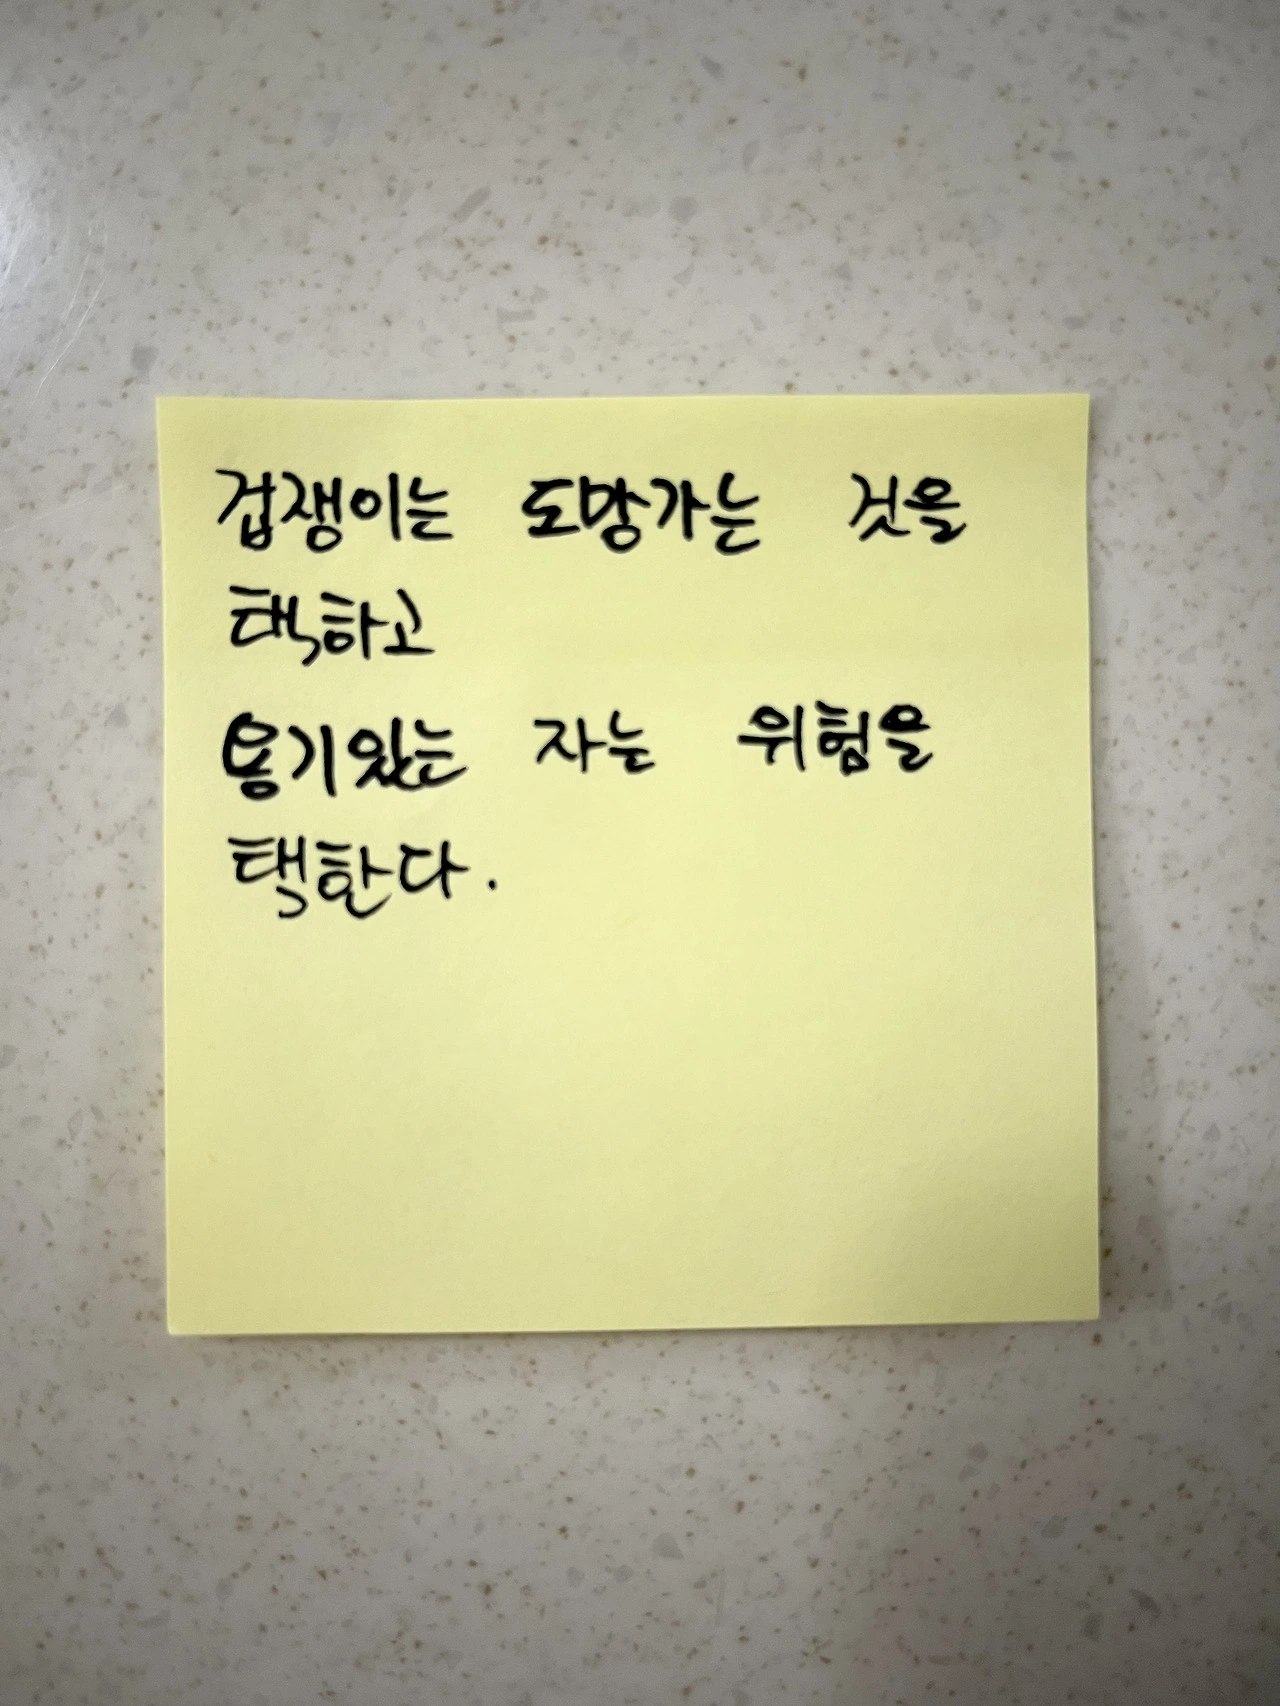 겁쟁이는 도망가는 것을
택하고
용기있는 자는 위험을
택한다.